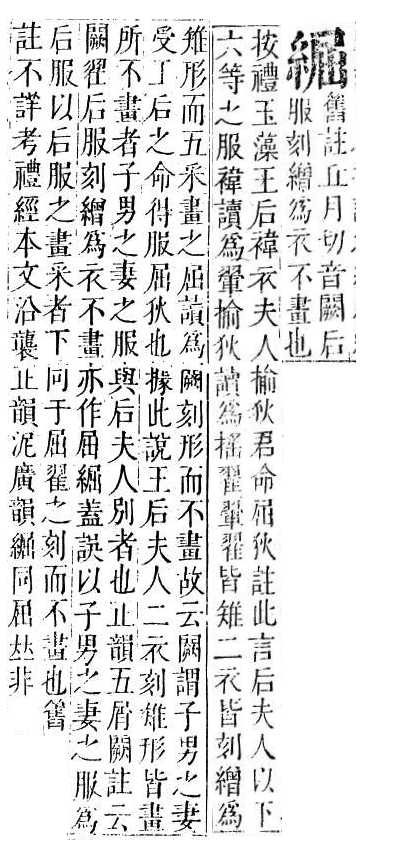 舊註丘月切音闕后
服刻繒爲衣不畫也
按禮玉藻王后褘衣夫人揄狄君命屈狄註此言后夫人以下
六等之服褘讀爲翬揄狄讀爲搖翟翬翟皆雉二衣皆刻繒爲
雉形而五采畫之屈讀爲闕刻形而不畫故云闕謂子男之妻
受王后之命得服屈狄也據此說王后夫人二衣刻雉形皆畫
所不畫者子男之妻之服與后夫人別者也正韻五屑闕註云
闕翟后服刻繒爲衣不畫亦作屈蓋誤以子男之妻之服爲
后服以后服之畫采者下同于屈翟之刻而不畫也舊
註不詳考禮經本文沿襲正韻泥廣韻同屈𠀤非